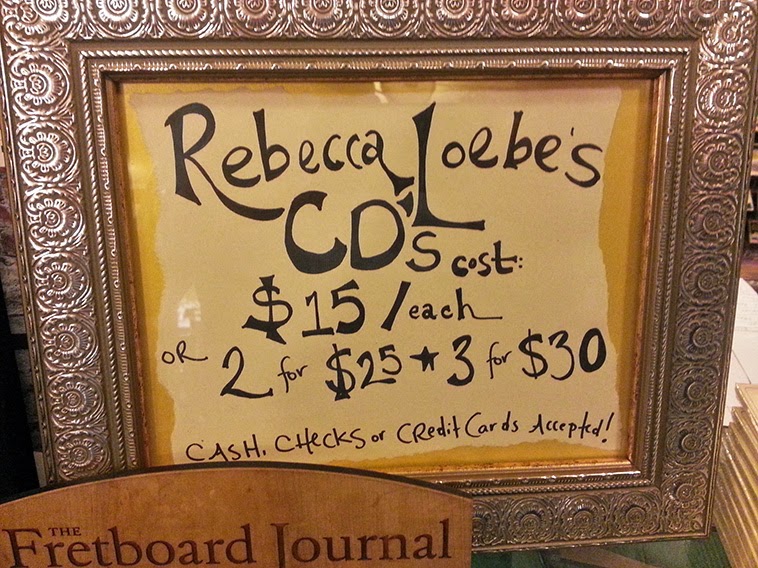 Rebecca Loebe's
CD's cost:
$15/each
OR 2 for $25 ★ 3 for $30
CASH, CHECKS or CRedit Cards Accepted!
THE
Fretboard Journal